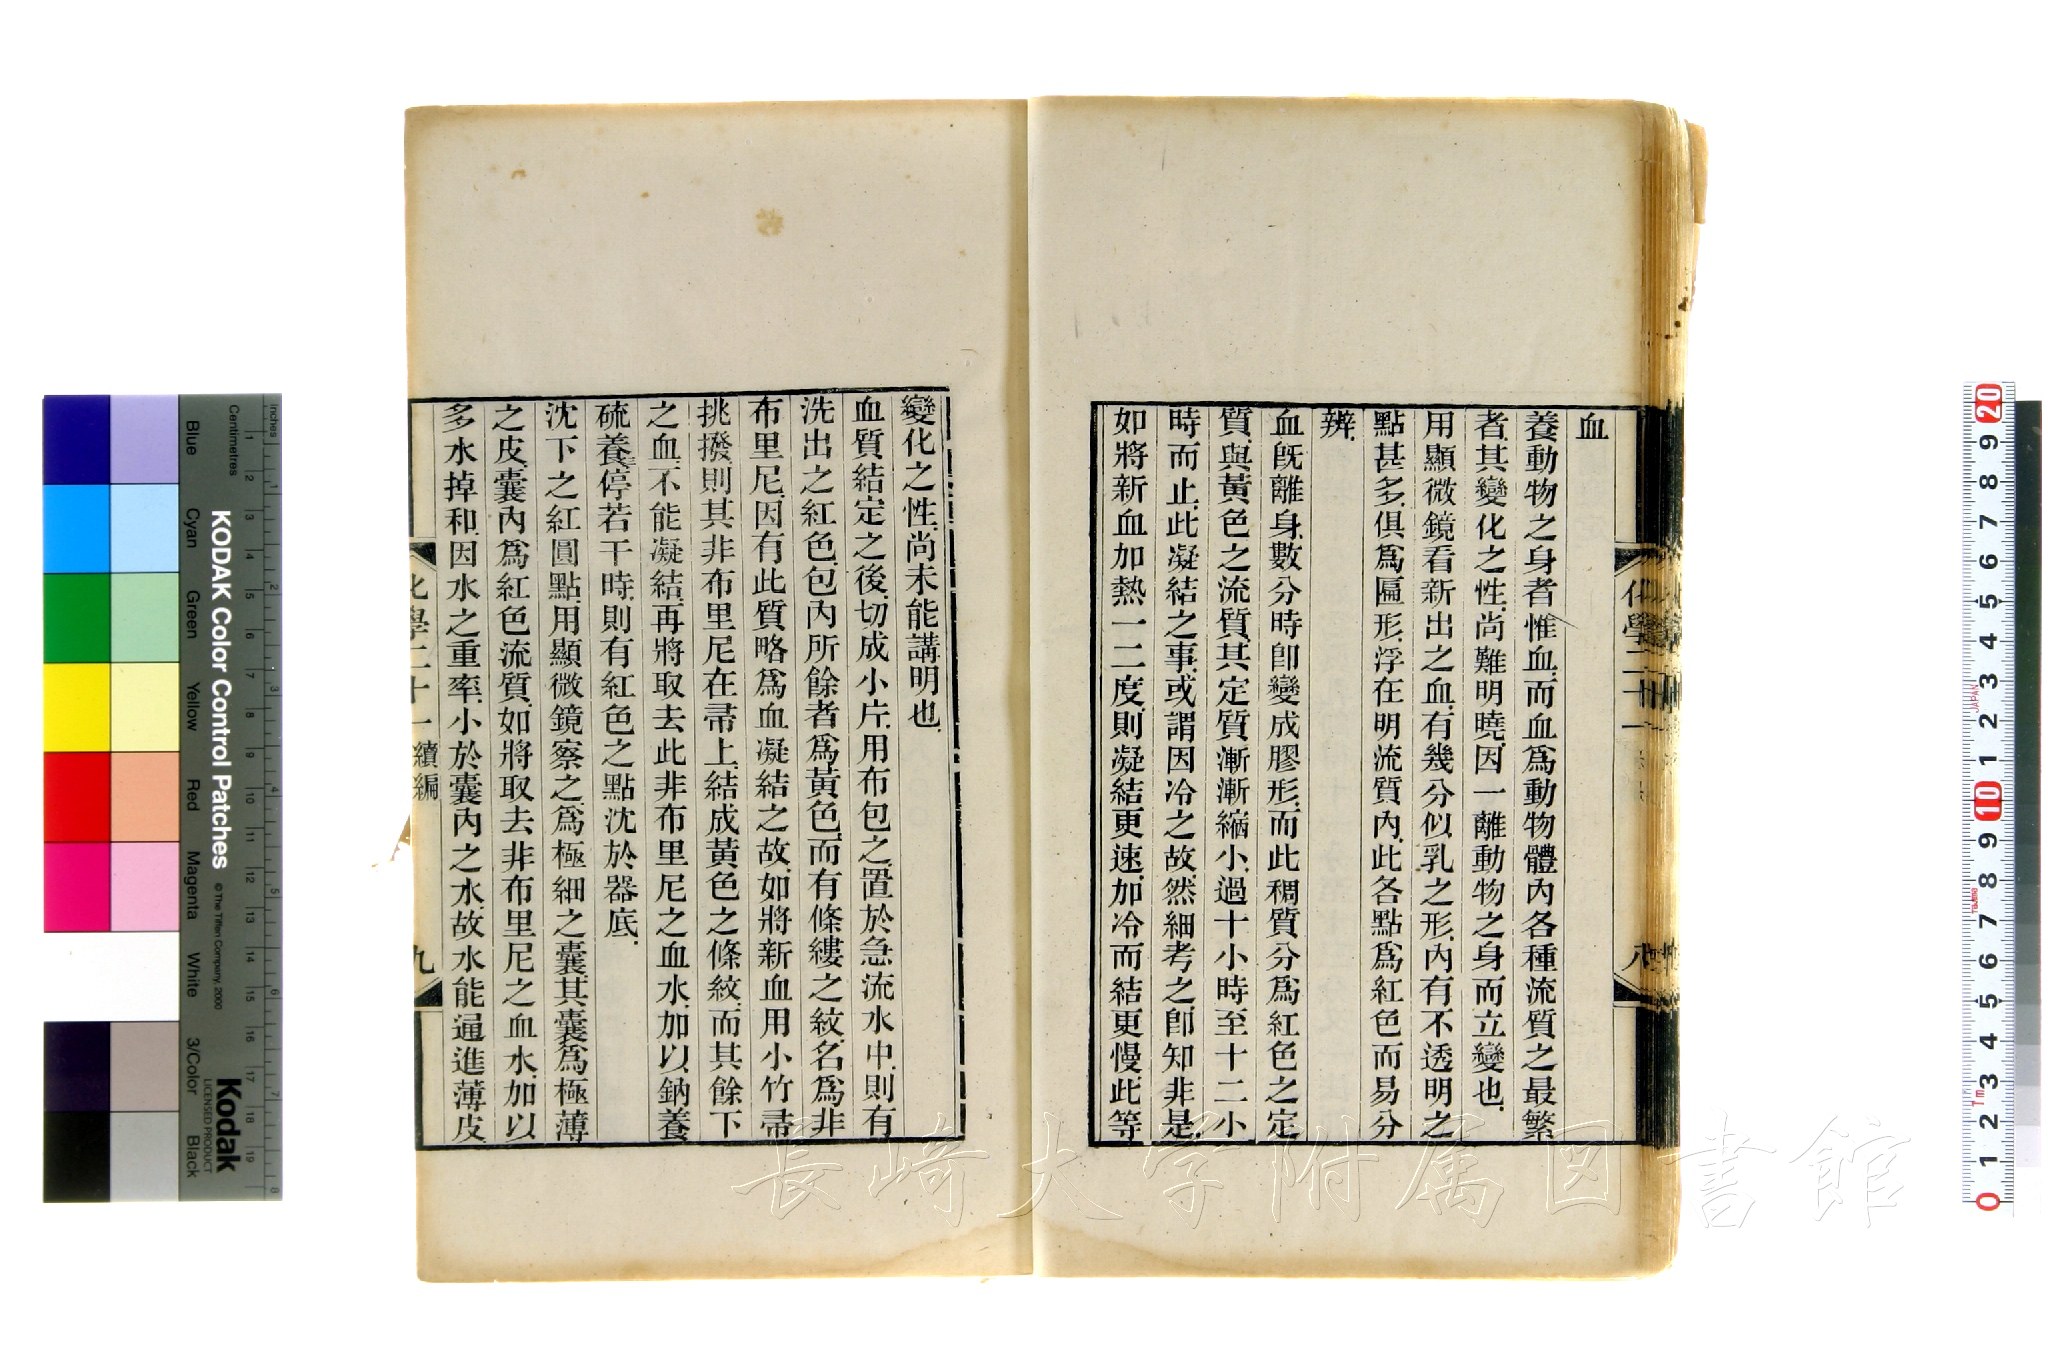 血
養動物之身者惟血而血爲動物體內各種流質之最繁
者其變化之性尚難明曉因一離動物之身而立變也
用顯微鏡看新出之血有幾分似乳之形內有不透明之
點甚多俱爲匾形浮在明流質內此各點爲紅色而易分
辨
血旣離身數分時卽變成膠形而此稠質分爲紅色之定
質與黃色之流質其定質漸漸縮小過十小時至十二小
時而止此凝結之事或謂因冷之故然細考之卽知非是
如將新血加熱一二度則凝結更速加冷而結更慢此等
化學二十一
八
變化之性尚未能講明也
血質結定之後切成小片用布包之置於急流水中則有
洗出之紅色包內所餘者爲黃色而有條縷之紋名爲非
布里尼因有此質略爲血凝結之故如將新血用小竹帚
挑撥則其非布里尼在帚上結成黃色之條紋而其餘下
之血不能凝結再將取去此非布里尼之血水加以鈉養
硫養停若干時則有紅色之點沈於器底
沈下之紅圓點用顯微鏡察之爲極細之囊其囊爲極薄
之皮囊內爲紅色流質如將取去非布里尼之血水加以
多水掉和因水之重率小於囊內之水故水能通進薄皮
化學二十一 續編
九
長崎大学附属図書館
KODAK Color Control Patches
© The Tiffen Company, 2000
Kodak
LICENSED PRODUCT
Inches
Centimetres
Blue
Cyan
Green
Yellow
Red
Magenta
White
3/Color
Black